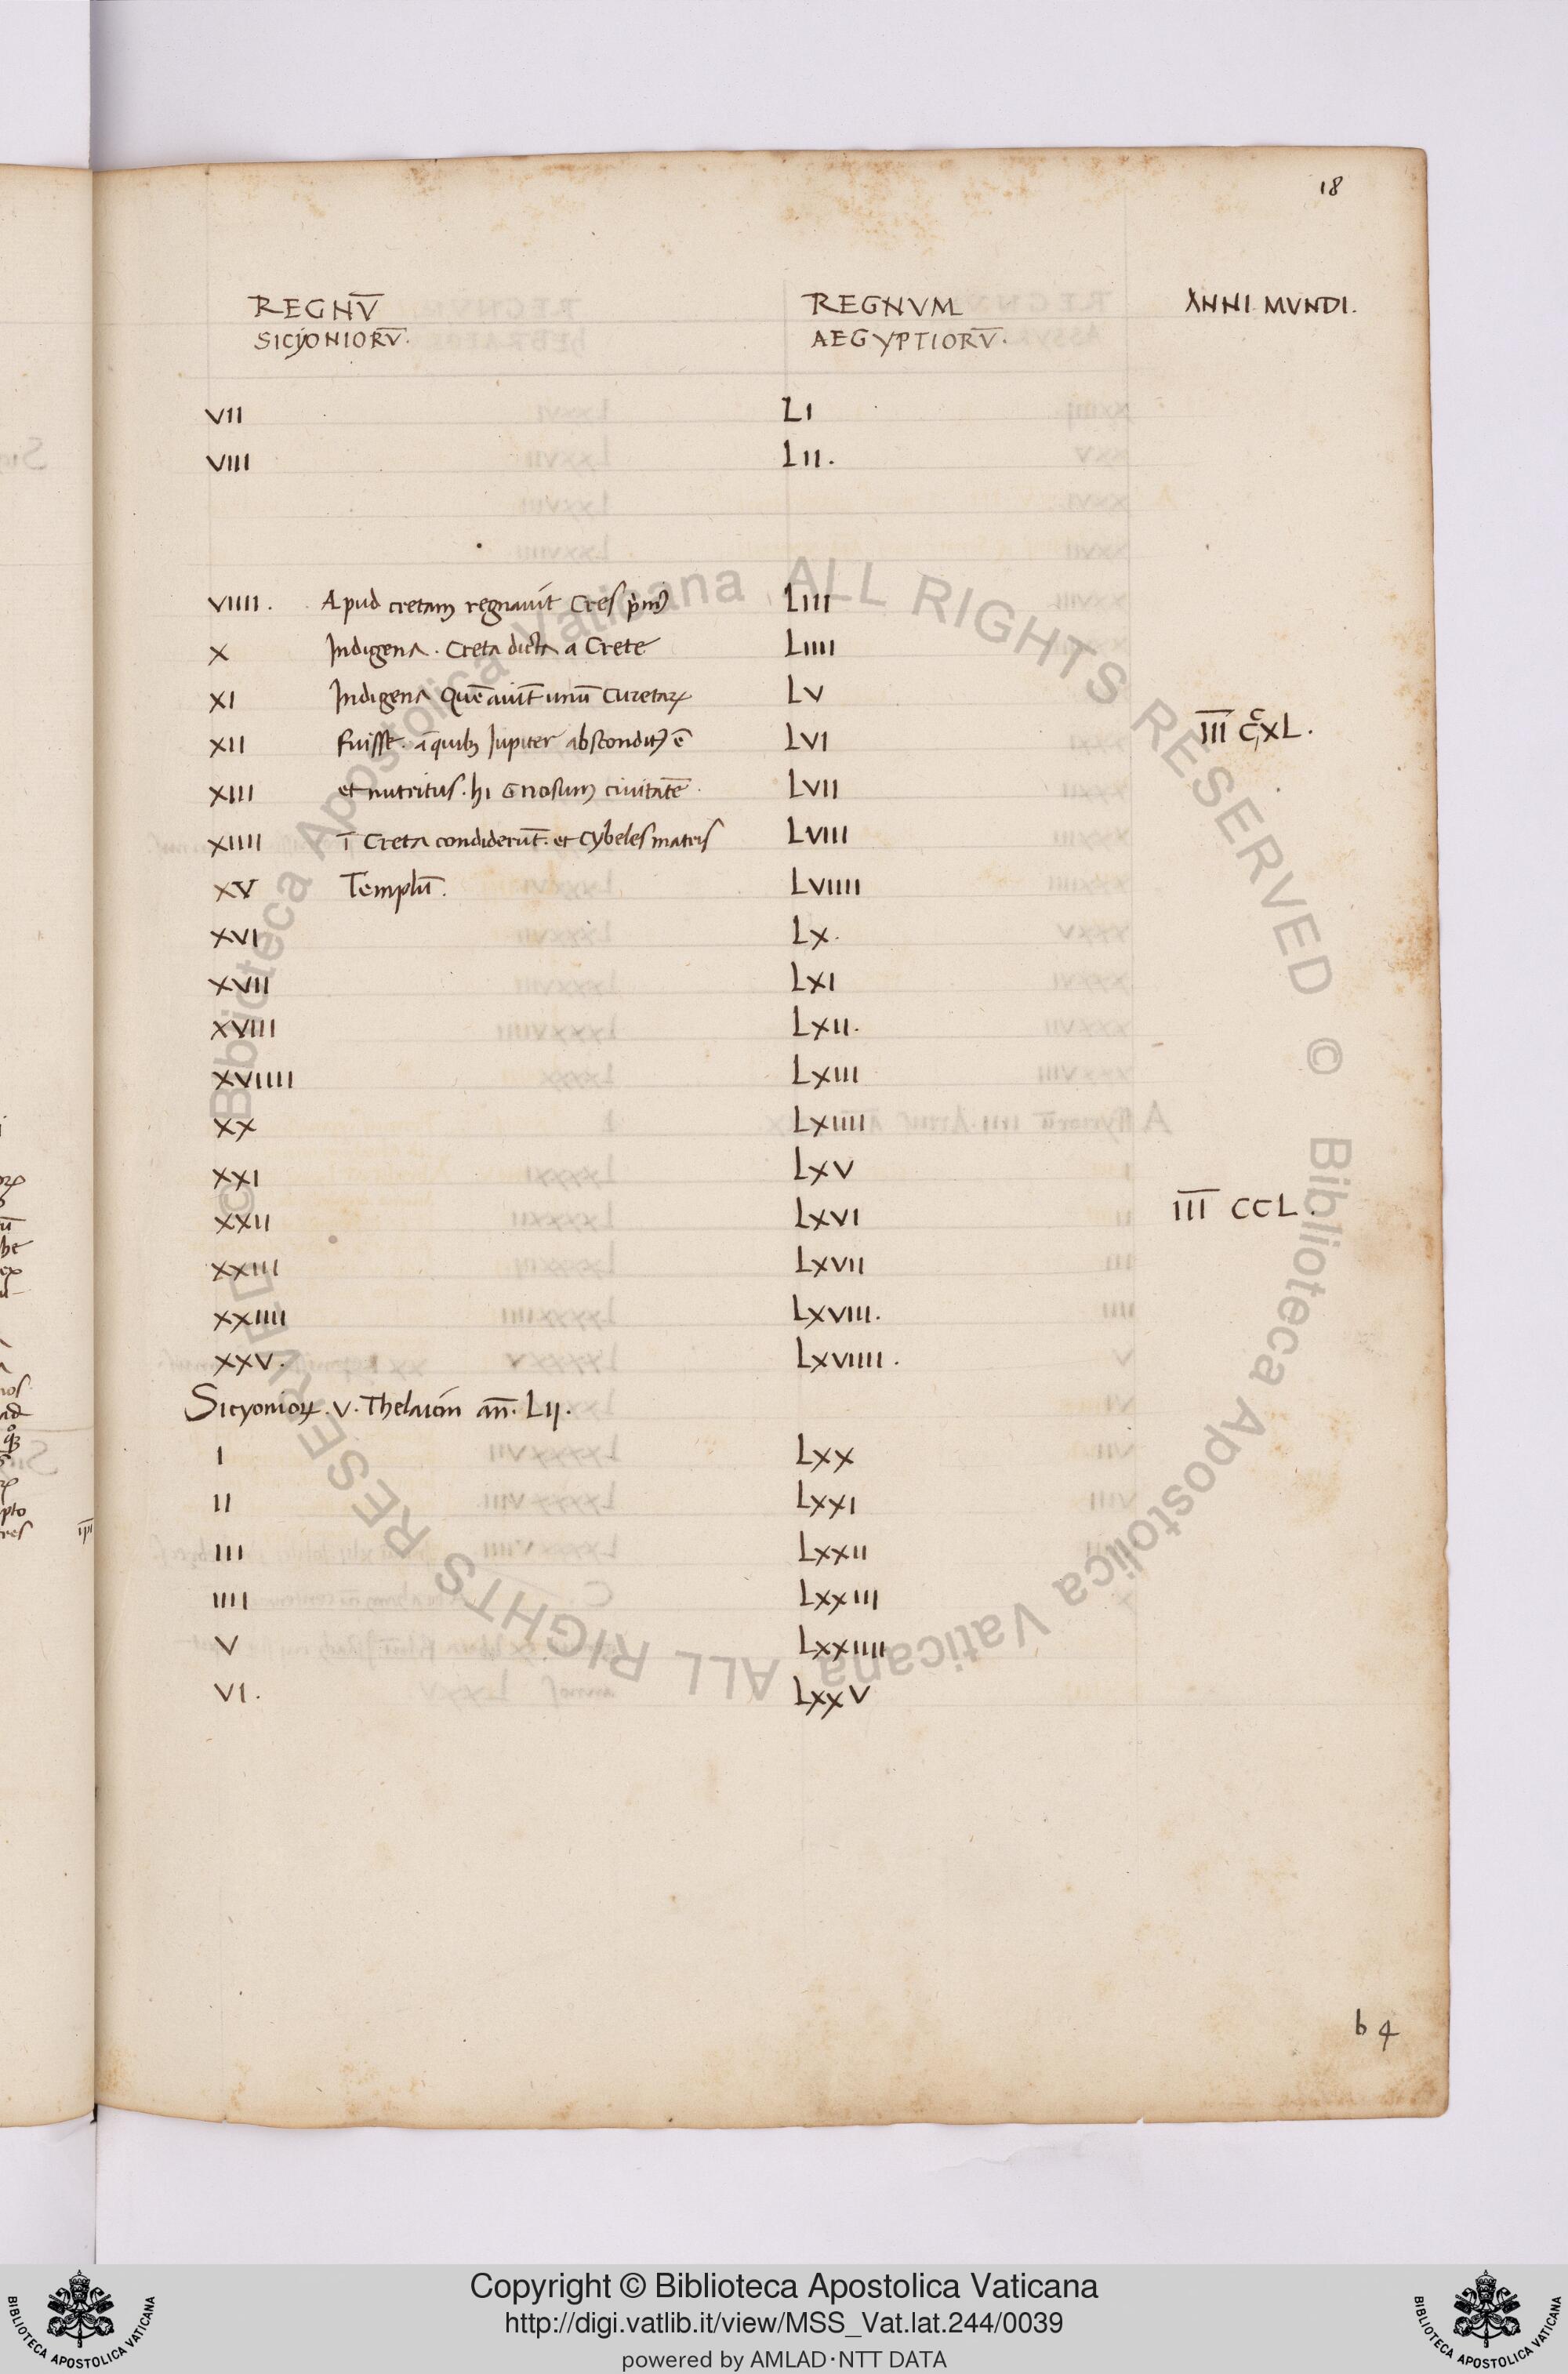 18
REGNV̄ REGNVM ANNI MVNDI.
SICYONIORV̄. AEGYPTIORV̄.
VII LI
VIII LII.
VIIII. Apud cretam regnauit Cres pim᷒ LIII
X Indigena. Creta dicta a Crete LIIII
XI Indigena Quē aiūt unū Curetaꝝ LV
XII Fuisse. a quibꝫ Iupiter absconditꝰ ē LVI III CCXL.
XIII et nutritus. hi Gnosum ciuitatē. LVII
XIIII ī Creta condiderūt. et Cybeles matris LVIII
XV Templū. LVIIII
XVI LX.
XVII LXI
XVIII LXII.
XVIIII LXIII
XX LXIIII
XXI LXV
XXII LXVI III CCL.
XXIII LXVII
XXIIII LXVIII.
XXV. LXVIIII.
Sicyonioꝝ. V. Thelaicin an̄. LII.
I LXX
II LXXI
III LXXII
IIII LXXIII
V LXXIIII
VI. LXXV
b 4
© Biblioteca Apostolica Vaticana ALL RIGHTS RESERVED © Biblioteca Apostolica Vaticana ALL RIGHTS RESERVED
Copyright © Biblioteca Apostolica Vaticana
http://digi.vatlib.it/view/MSS_Vat.lat.244/0039
powered by AMLAD·NTT DATA
BIBLIOTECA APOSTOLICA VATICANA
BIBLIOTECA APOSTOLICA VATICANA